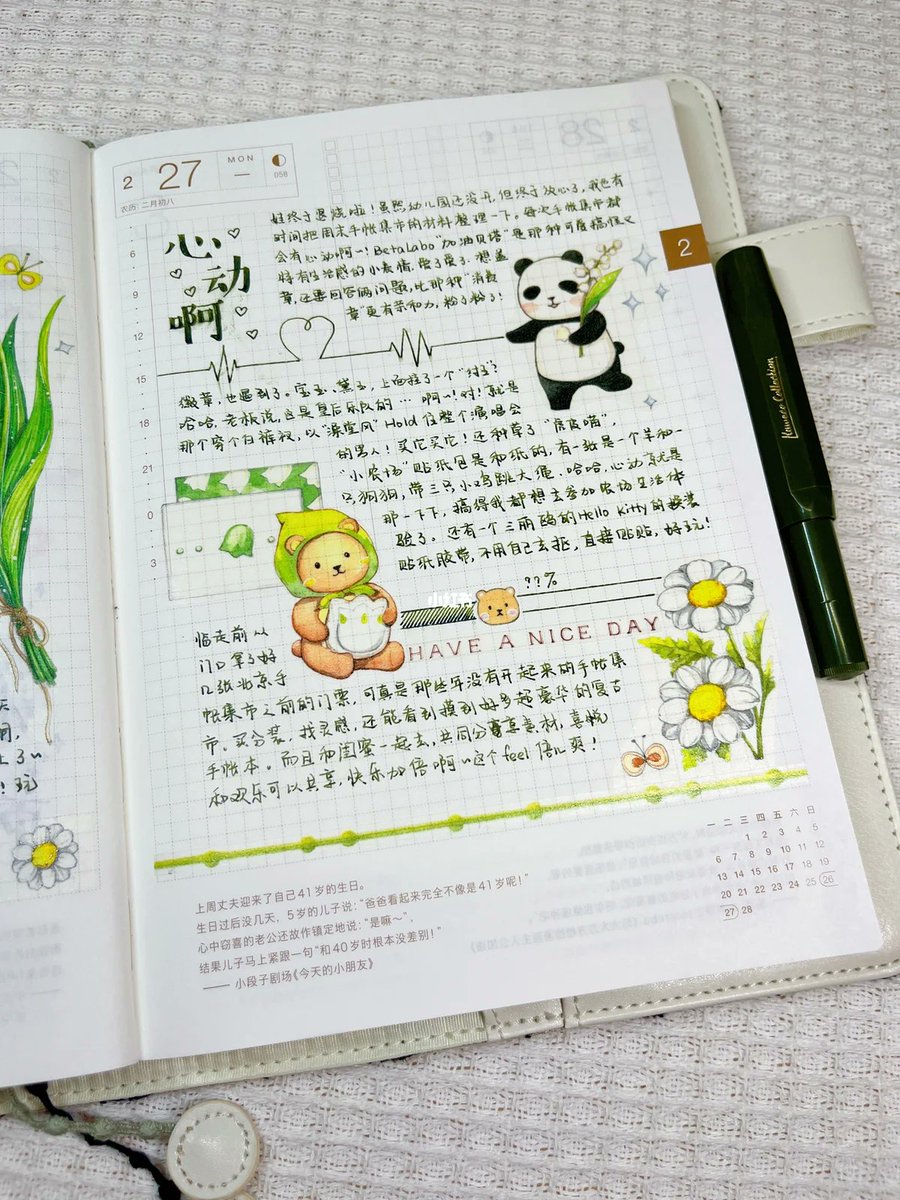 2 27 MON
一 058
农历 二月初八
28
2
心动啊
娃终于退烧啦！虽然幼儿园还没开，但终于放心了，我也有
时间把周末手帐集市的材料整理一下。每次手帐集市都
会有心动啊~！Betalabo"加油贝塔"是那种可爱搞怪又
特有生活感的小表情，爱了爱了。想盖
章，还要回答俩问题，比那种"消费
章"更有亲和力，粉了粉了！
6
9
12
15
18
21
0
3
徽章，也遇到了。宝玉、黛玉，上面挂了一个
哈哈，老板说，这是皇后乐队的…啊~！对！就是
那个穿个白裤衩，以"澡堂风"Hold住整个演唱会
的男人！买它买它！还种草了
"小农场"贴纸包是和纸的，有一张是一个羊和一
只狗狗，带三只小鸡跳大绳，哈哈，心动就是
那一下下，搞得我都想去参加农场生活体
验了。还有一个三丽鸥的Hello Kitty的换装
贴纸胶带，不用自己去抠，直接贴贴，好玩！
??%
HAVE A NICE DAY
临走前从
门口拿了好
几张北京手
帐集市之前的门票，可真是那些年没有开起来的手帐集
市。买分装，找灵感，还能看到摸到好多超豪华的复古
手帐本。而且和闺蜜一起去，共同分享素材，喜悦
和欢乐可以共享，快乐加倍啊~这个feel倍儿爽！
Kaweco Collection
上周丈夫迎来了自己41岁的生日。
生日过后没几天，5岁的儿子说："爸爸看起来完全不像是41岁呢！"
心中窃喜的老公还故作镇定地说："是嘛～"，
结果儿子马上紧跟一句"和40岁时根本没差别！"
—— 小段子剧场《今天的小朋友》
一 二 三 四 五 六 日
1 2 3 4 5
6 7 8 9 10 11 12
13 14 15 16 17 18 19
20 21 22 23 24 25 26
27 28